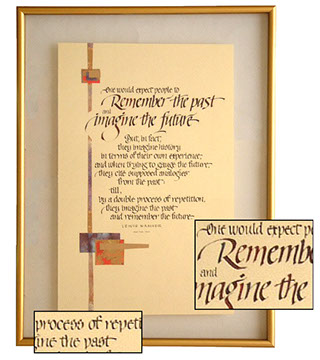 One would expect people to
Remember the past
and
imagine the future.
But, in fact,
they imagine history
in terms of their own experience,
and when trying to gauge the future
they cite supposed analogies
from the past
till,
by a double process of repetition,
they imagine the past
and remember the future.
LEWIS NAMIER
One would expect pe
Rememb
and
magine the
process of repeti
ine the past